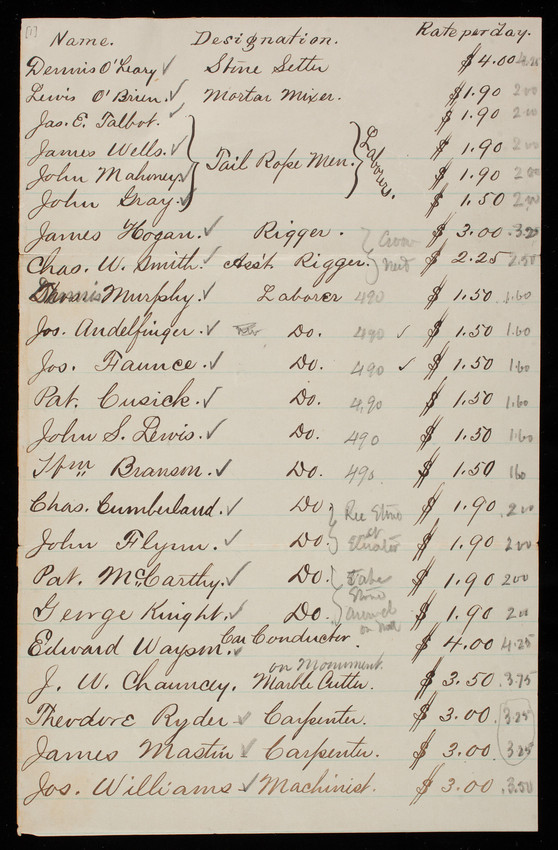 [1]
Name. Designation. Rate per day.
Dennis O'Leary ✓ Stone Setter $4.00 4.25
Lewis O'Brien. ✓ Mortar Mixer. $1.90 2 00
Jas. E. Talbot. ✓ $1.90 2 00
James Wells. ✓ Tail Rope Men. Laborers. $1.90 2 00
John Mahoney. ✓ $1.90 2 00
John Gray. ✓ $1.50 2.00
James Hogan. ✓ Rigger. $3.00 3.25
Chas. W. Smith. ✓ Ass't Rigger. $2.25 2.50
Dennis Murphy. ✓ Laborer 490 $1.50 1.60
Jos. Andelfinger. ✓ Do. 490 ✓ $1.50 1.60
Jos. Faunce. ✓ Do. 490 ✓ $1.50 1.60
Pat. Cusick. ✓ Do. 490 $1.50 1.60
John S. Lewis. ✓ Do. 490 $1.50 1.60
Wm Branson. ✓ Do. 490. $1.50 1 60
Chas. Cumberland. ✓ Do Rec Stone $1.90 .2 00
John Flynn. ✓ Do. at Elevator $1.90 2 00
Pat. McCarthy. ✓ Do. Take $1.90 2 00
George Knight. ✓ Do. Stone around on $1.90 2 00
Edward Wayson. ✓ Car Conductor. $4.00 4.25
on Monument
J. W. Chauncey. Marble Cutter. $3.50 3.75
Theodore Ryder ✓ Carpenter. $3.00. 3.25
James Mastin ✓ Carpenter. $3.00 3.25
Jos. Williams ✓ Machinist. $3.00 .3.50